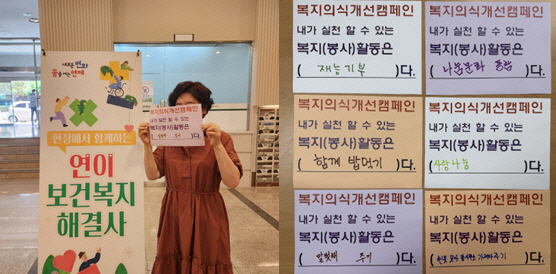 새로운 변화
꿈을 이루는 연제
현장에서 함께하는
연이
보건복지
해결사
복지의식개선캠페인
내가 실천 할 수 있는
복지(봉사)활동은
( )다.
복지의식개선캠페인
내가 실천 할 수 있는
복지(봉사)활동은
( 재능기부 )다.
복지의식개선캠페인
내가 실천 할 수 있는
복지(봉사)활동은
( 나눔문화 )다.
복지의식개선캠페인
내가 실천 할 수 있는
복지(봉사)활동은
( 함께 밥먹기 )다.
복지의식개선캠페인
내가 실천 할 수 있는
복지(봉사)활동은
(사랑나눔 )다.
복지의식개선캠페인
내가 실천 할 수 있는
복지(봉사)활동은
( 말벗해 주기 )다.
복지의식개선캠페인
내가 실천 할 수 있는
복지(봉사)활동은
( )다.